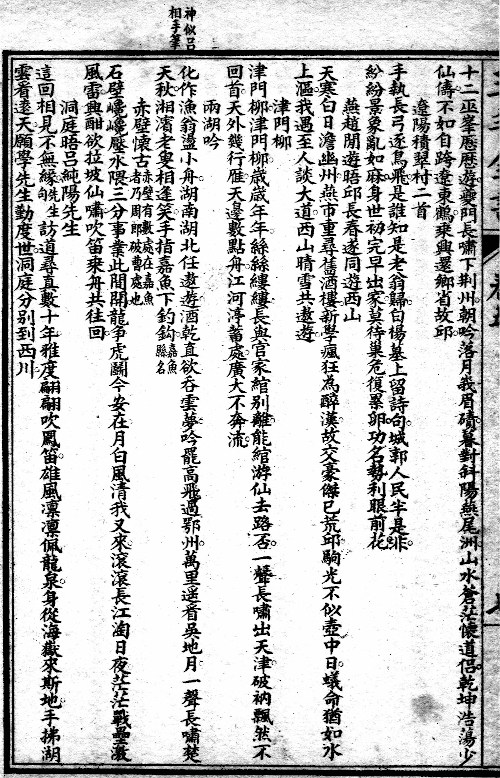 神似呂
相手筆
十二巫峯歷歷遊夔門長嘯下荆州朝吟落月我眉磧暮對斜陽燕尾洲山水蒼茫懷道侶乾坤浩蕩少
仙儔不如自跨遼東鶴乘興還鄉省故邱
遼陽積翠村二首
手執長弓逐鳥飛是誰知是老翁歸白楊墓上留詩句城郭人民半是非
紛紛景象亂如麻身世初完早出家莫待巢危復累卵功名勢利眼前花
燕趙閒遊晤邱長春遂同遊西山
天寒白日澹幽州燕市重尋舊酒樓新學瘋狂為醉漢故交豪傑已荒邱駒光不似壺中日蟻命猶如水
上漚我遇至人談大道西山晴雪共遨遊
津門柳
津門柳津門柳歲歲年年絲絲縷縷長與官家綰別離能綰游仙去路否一聲長嘯出天津破衲飄然不
回首天外幾行雁天邊數點舟江河亭蓄處廣大不奔流
兩湖吟
化作漁翁盪小舟湖南湖北任遨遊酒乾直欲吞雲夢吟罷高飛過鄂州萬里遥看吳地月一聲長嘯楚
天秋湘濱老叟相逢笑手指嘉魚下釣鈎嘉魚縣名
赤壁懷古赤壁有數處在嘉魚者乃周郎破曹處也
石壁巉巉壓水隈三分事業此間開龍爭虎鬭今安在月白風清我又來滾滾長江淘日夜茫茫戰壘激
風雷興酣欲拉坡仙嘯吹笛乘舟共往回
洞庭晤呂純陽先生
這回相見不無緣句先生訪道尋真數十年雅度翩翩吹鳳笛雄風凛凛佩龍泉身從海嶽來斯地手拂湖
雲看遠天願學先生勤度世洞庭分別到西川